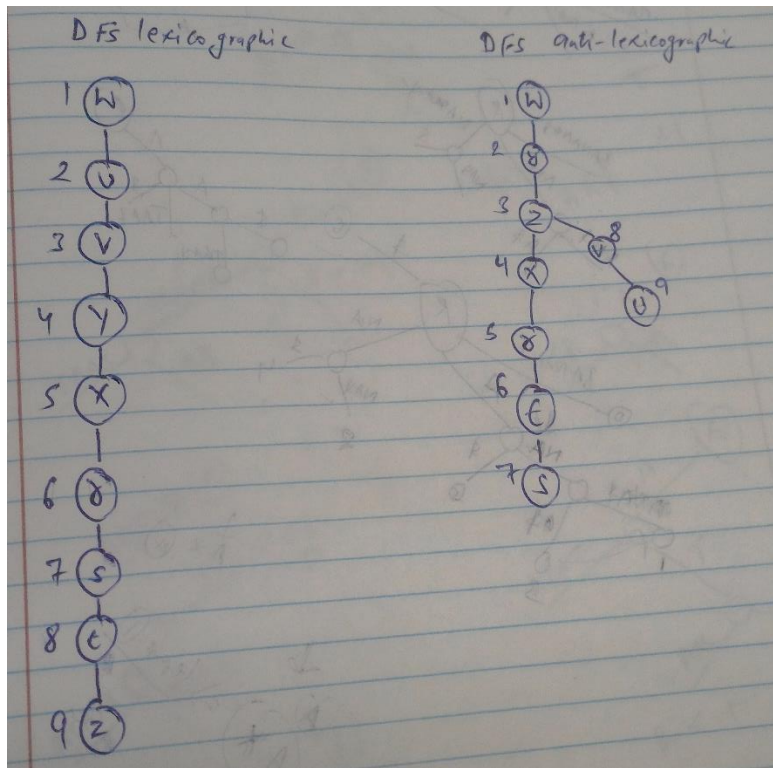 DFS lexicographic
1 W
2 U
3 V
4 Y
5 X
6 r
7 S
8 t
9 Z
DFS anti-lexicographic
1 W
2
3 Z
4 X
5 r
6 t
7 S
8 V
9 U